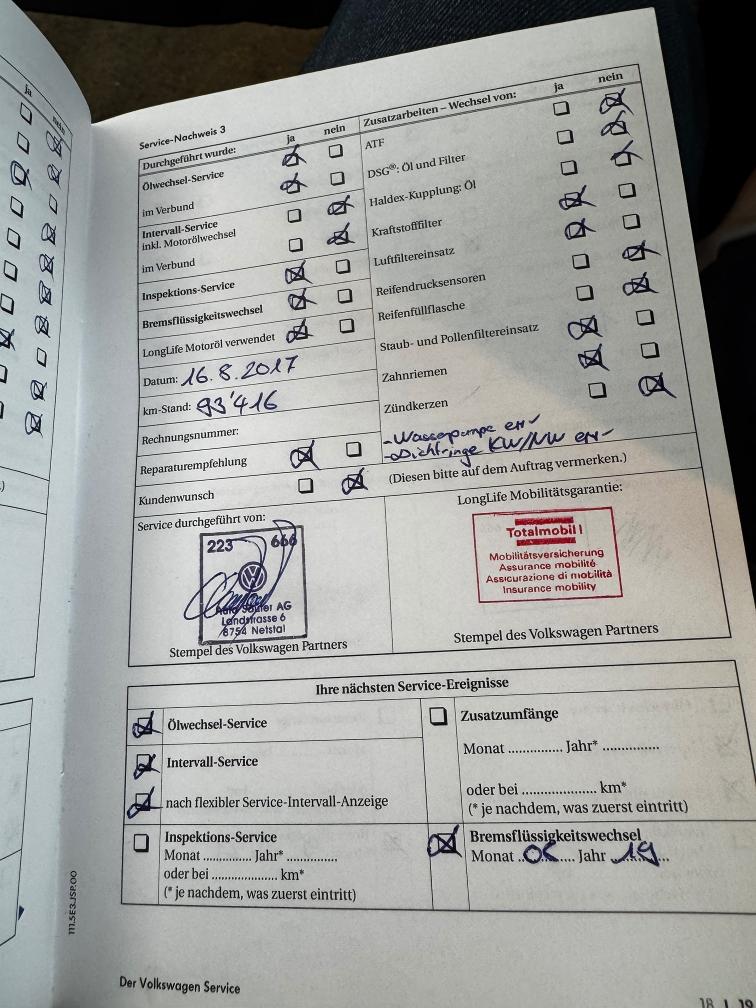 ja
nein
Service-Nachweis 3
Durchgeführt wurde:
ja
nein
Ölwechsel-Service
im Verbund
Intervall-Service
inkl. Motorölwechsel
im Verbund
Inspektions-Service
Bremsflüssigkeitswechsel
LongLife Motoröl verwendet
Datum: 16.8.2017
km-Stand: 93'416
Rechnungsnummer:
Reparaturempfehlung
Kundenwunsch
Zusatzarbeiten – Wechsel von:
ja
nein
ATF
DSG®: Öl und Filter
Haldex-Kupplung: Öl
Kraftstofffilter
Luftfiltereinsatz
Reifendrucksensoren
Reifenfüllflasche
Staub- und Pollenfiltereinsatz
Zahnriemen
Zündkerzen
-Wasserpumpe
-Dichtringe KW/NW
(Diesen bitte auf dem Auftrag vermerken.)
Service durchgeführt von:
223 666
AG
Landstrasse 6
8754 Netstal
Stempel des Volkswagen Partners
LongLife Mobilitätsgarantie:
Totalmobil!
Mobilitätsversicherung
Assurance mobilité
Assicurazione di mobilità
Insurance mobility
Stempel des Volkswagen Partners
Ihre nächsten Service-Ereignisse
Ölwechsel-Service
Intervall-Service
nach flexibler Service-Intervall-Anzeige
Zusatzumfänge
Monat .............. Jahr* ..............
oder bei .................. km*
(* je nachdem, was zuerst eintritt)
Inspektions-Service
Monat ............ Jahr* ............
oder bei ................ km*
(* je nachdem, was zuerst eintritt)
Bremsflüssigkeitswechsel
Monat .......... Jahr ..19...
111.5E3.JSP.00
Der Volkswagen Service